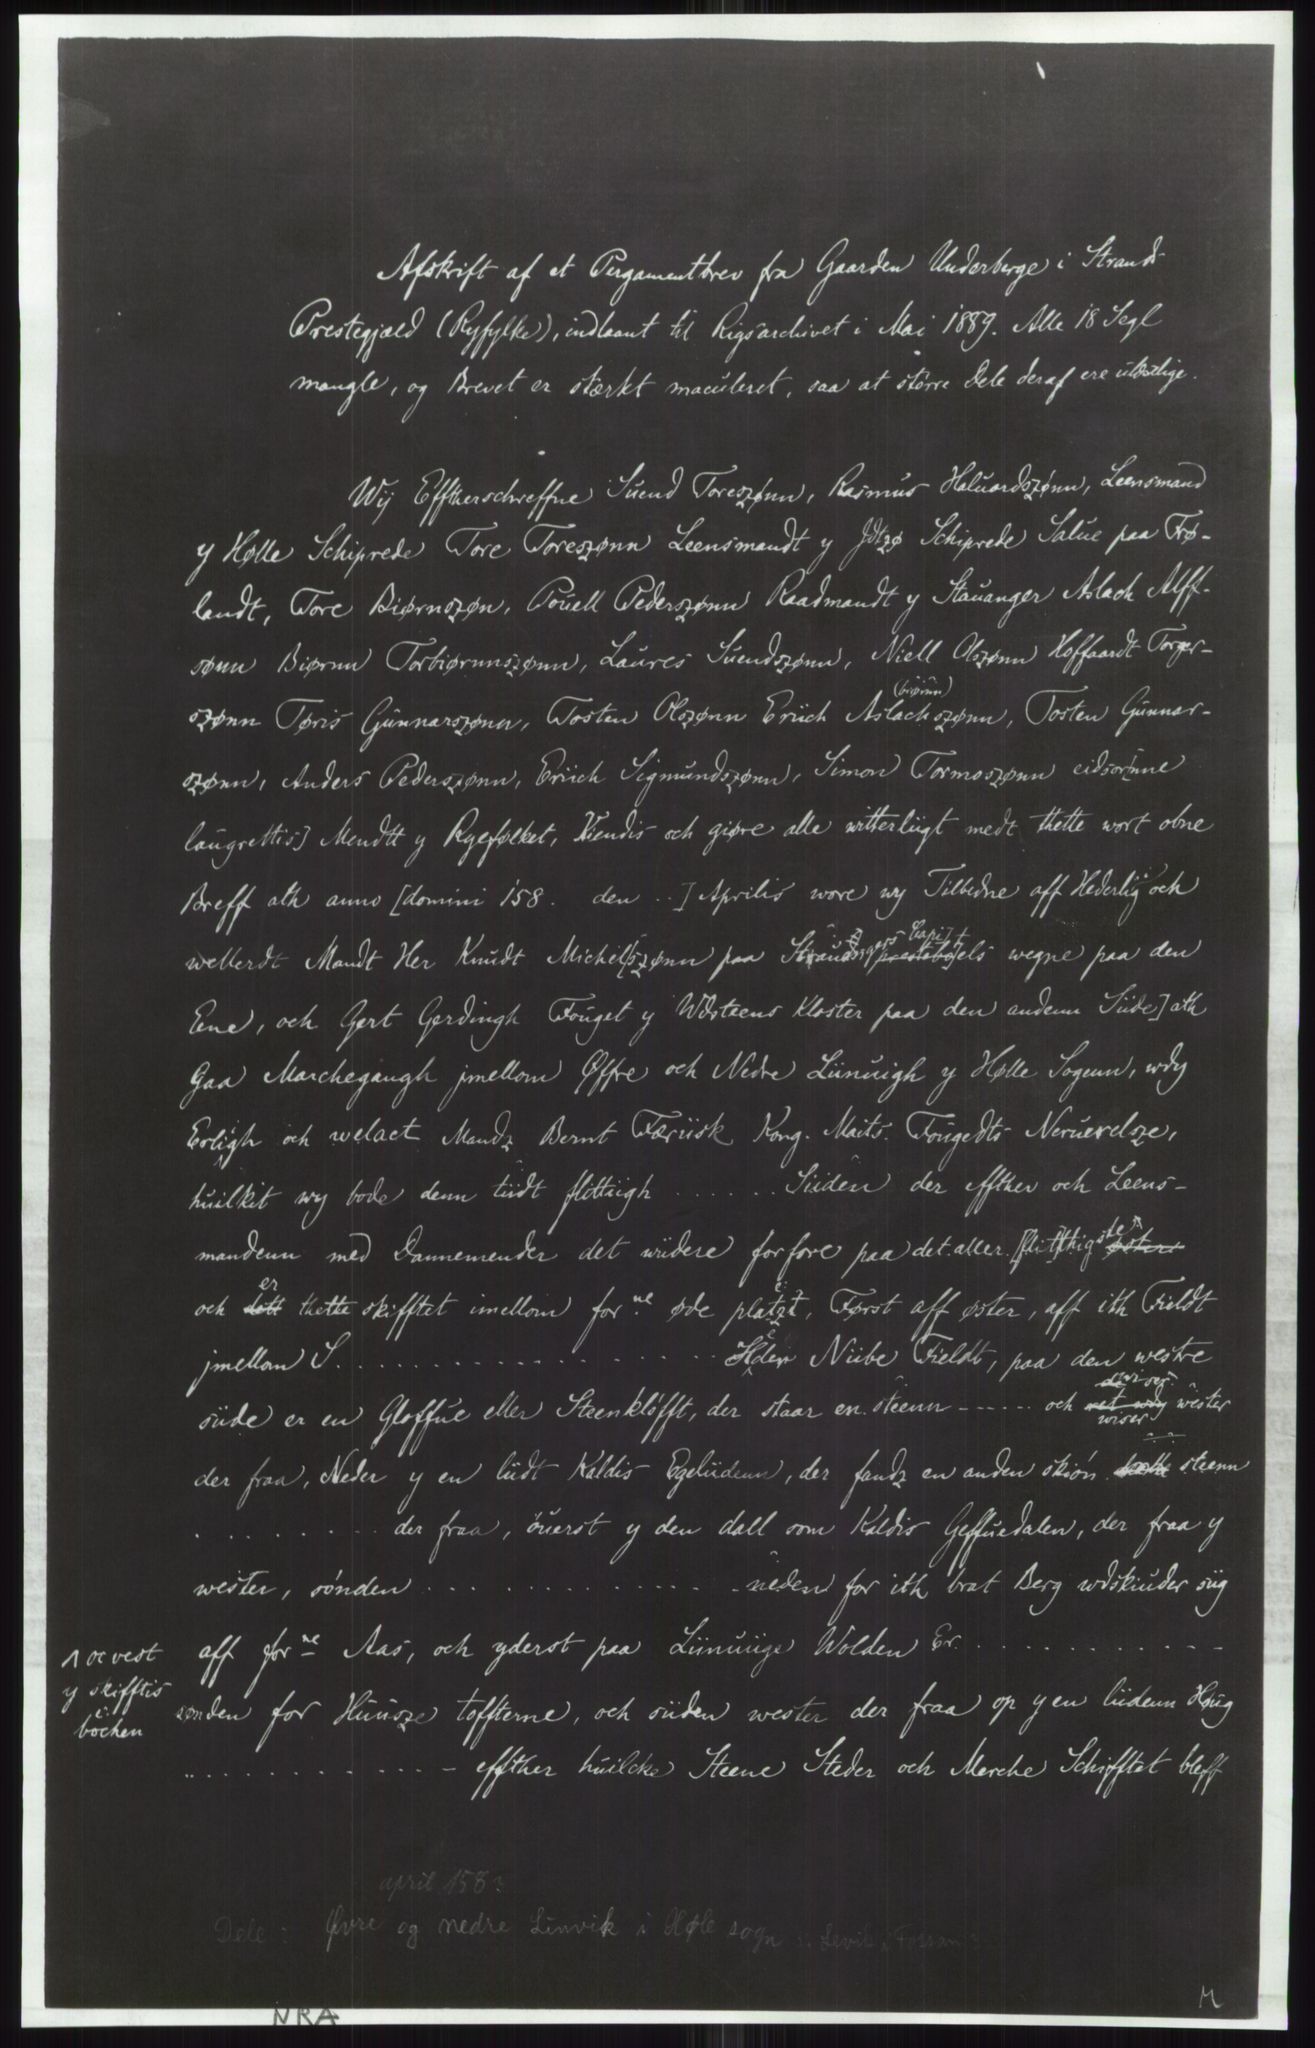 Afskrift af et Pergamentbrev fra Gaarden Underberge i Strands
Prestegjæld (Ryfylke), indlaant til Rigsarchivet i Mai 1889. Alle 18 Segl
mangle, og Brevet er stærkt maculeret, saa at större Dele deraf ere ulæselige.
Wij Effterschreffne Suend Toreszønn, Rasmus Haluordszønn, Leensmand
y Hølle Schiprede Tore Toreszønn Leensmandt y Jdtzø Schiprede Salue paa Frø-
landt, Tore Biørnszøn, Pouell Pederszønn Raadmandt y Stauanger Aslach Alff-
sønn Biørnn Torbiørnnszønn, Laures Suendszønn, Niell Olszønn Hoffaardt Torger-
szønn Tøris Gunnarszønn, Tosten Olszønn Eriich Aslachszønn, Tosten Gunnar-
(biørnn)
szønn, Anders Pederszønn, Eriich Sigmundszønn, Simon Tormoszønn eidsorinne
laugrettis] Mendtt y Ryefølket, Kiendis och giøre alle witterliigt medt thette wort obne
Breff ath anno [domini 158. den ..] Aprilis wore wy Tilbedne aff Hederlig och
wellerdt Mandt Her Knudt Michel[szønn paa wegne paa den
Ene, och Gert Gerdingh Fouget y Wdsteens Kloster paa den andenn Siide] ath
Gaa Marchegangh jmellom Øffre och Nedre Liinuigh y Hølle Sogenn, wdy
Erligh och welact Mandz Bernt Færiisk Kong. Maits. Fougedts Neruerelsze,
huilkit wy bode denn tiidt flittiigh ...... Siiden der effther och Leens-
mandenn med Dannemender det wiidere forfore paa det aller. flitthigste
och er thette skifftet imellom for ne øde platzt, Først aff øster, aff ith Fieldt
jmellom S .................... Niibe Fieldt, paa den westre
siide er en Gloffue eller Steenklöfft, der staar en steenn ------ och wiser wester
der fraa, Neder y en liidt Kaldis Egeliidenn, der fandz en anden skiön steenn
......... der fraa, öuerst y den dall som Kaldis Geffuedalen, der fraa y
wester, sónden ............... neden for ith brat Berg wdskiuder siig
aff for ne Aas, och yderst paa Liinuiige Wolden Er. ............
oc vest
y skifftis
böcken
sønden for Huusze toffterne, och siiden wester der fraa op y en liidenn Høug
............ effther huilcke Steene Steder och Merche Schifftet bleff
april 158?
Dele: Øvre og nedre Linvik i Høle sogn
NRA
M